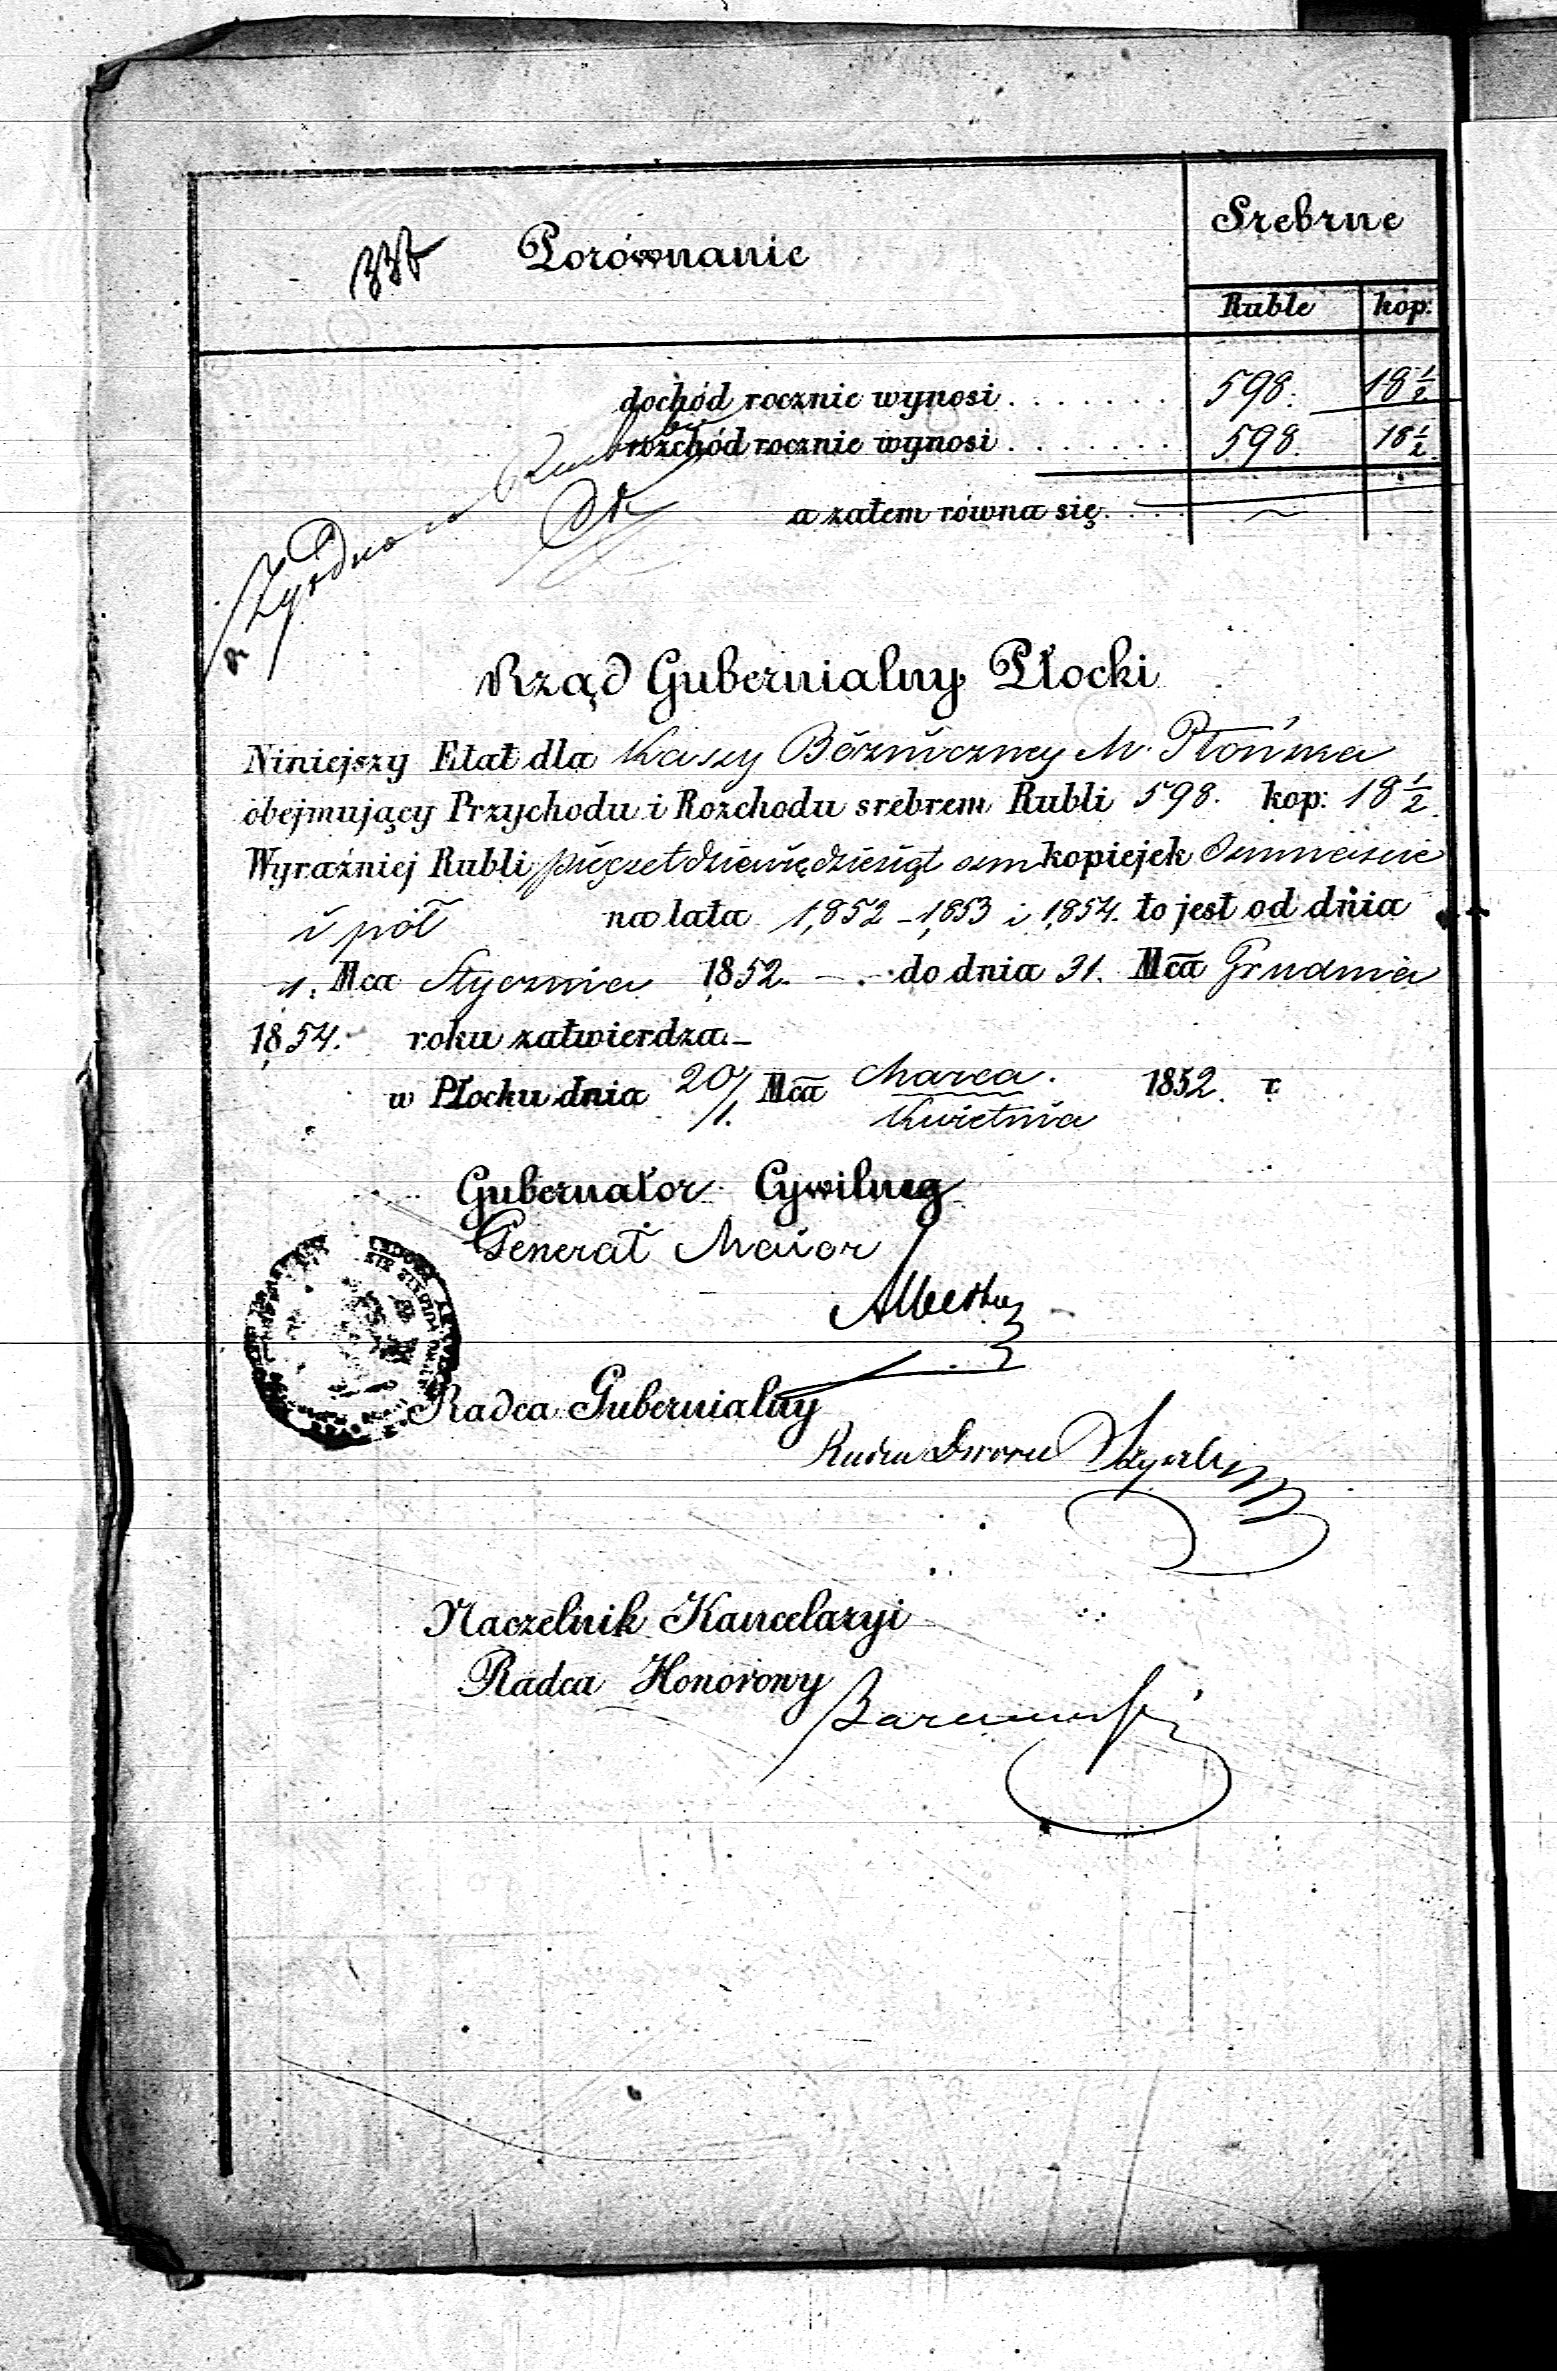 Porównanie
Srebrne
Ruble kop:
dochód rocznie wynosi . . . . . . . 598. 18 1/2
rozchód rocznie wynosi . . . . . . . 598. 18 1/2
a zatem równa się . . .
Zgodno
Rząd Gubernialny Płocki
Niniejszy Etat dla Kassy Bóżniczney M. Płońska
obejmujący Przychodu i Rozchodu srebrem Rubli 598. kop: 18 1/2.
Wyraźniej Rubli pięćset dziewięćdziesiąt osm kopiejek Osmnaście
i pół na lata 1852 – 1853 i 1854. to jest od dnia
1. Mca Stycznia 1852. – do dnia 31. Mca Grudnia
1854. roku zatwierdza. –
w Płocku dnia 20/1. Mca Marca/Kwietnia 1852. r.
Gubernator Cywilny
Generał Maior
Radca Gubernialny
Radca Dworu
Naczelnik Kancelaryi
Radca Honorowy